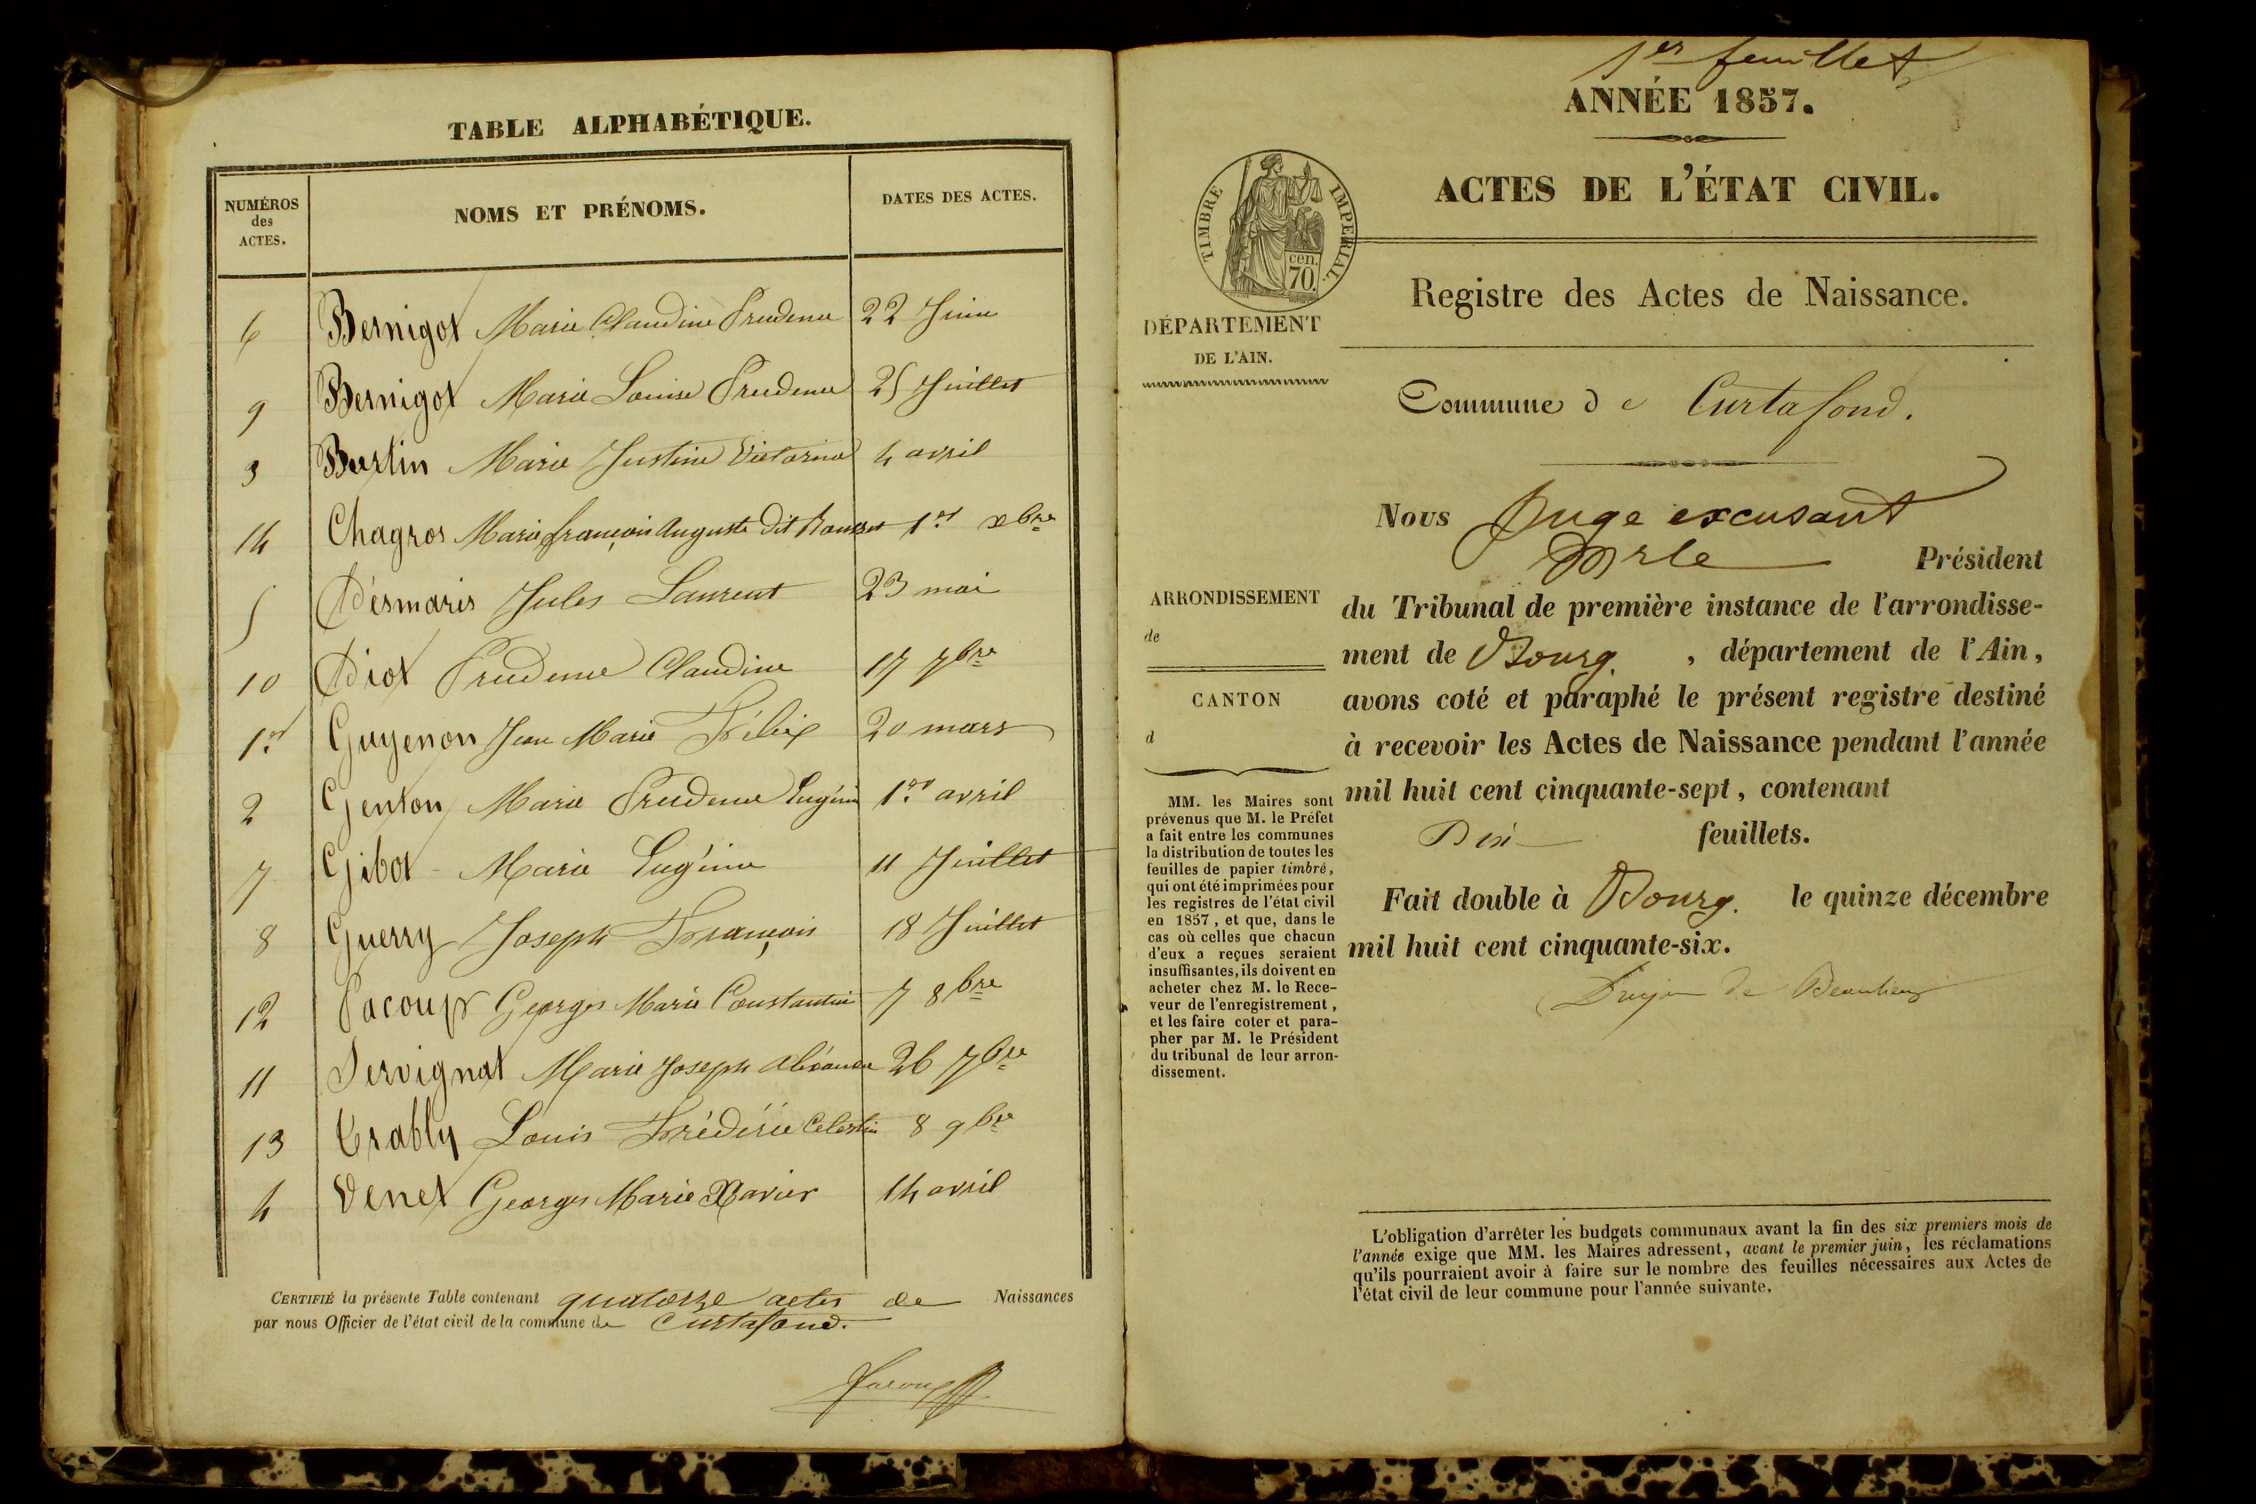 TABLE ALPHABÉTIQUE.
NUMÉROS
des
ACTES.
NOMS ET PRÉNOMS.
DATES DES ACTES.
6 Bernigot Marie Claudine Prudence 22 Juin
9 Bernigot Marie Louise Prudence 25 Juillet
3 Bertin Marie Justine Victorine 4 avril
14 Chagros Marie françois Auguste dit 1er xbre
5 Désmaris Jules Laurent 23 mai
10 Diot Prudence Claudine 17 7bre
1er Guyenon Jean Marie Félix 20 mars
2 Genton Marie Prudence Eugénie 1er avril
7 Gibot Marie Eugénie 11 Juillet
8 Guerry Joseph François 18 Juillet
12 Pacoup Georges Marie Constantin 7 8bre
11 Servignat Marie Joseph 26 7bre
13 Trably Louis Frédéric Celestin 8 9bre
4 Venet Georges Marie Xavier 14 avril
CERTIFIÉ la présente Table contenant quatorze actes de Naissances
par nous Officier de l'état civil de la commune de Curtafond.
1er feuillet
ANNÉE 1857.
ACTES DE L'ÉTAT CIVIL.
TIMBRE IMPERIAL.
cen.
70.
Registre des Actes de Naissance.
DÉPARTEMENT
DE L'AIN.
Commune de Curtafond.
Nous Juge excusant
Mr le Président
du Tribunal de première instance de l'arrondisse-
ment de Bourg. , département de l'Ain,
avons coté et paraphé le présent registre destiné
à recevoir les Actes de Naissance pendant l'année
mil huit cent cinquante-sept, contenant
Dix feuillets.
Fait double à Bourg. le quinze décembre
mil huit cent cinquante-six.
de Beaulieu
ARRONDISSEMENT
de
CANTON
d
MM. les Maires sont
prévenus que M. le Préfet
a fait entre les communes
la distribution de toutes les
feuilles de papier timbré,
qui ont été imprimées pour
les registres de l'état civil
en 1857, et que, dans le
cas où celles que chacun
d'eux a reçues seraient
insuffisantes, ils doivent en
acheter chez M. le Rece-
veur de l'enregistrement,
et les faire coter et para-
pher par M. le Président
du tribunal de leur arron-
dissement.
L'obligation d'arrêter les budgets communaux avant la fin des six premiers mois de
l'année exige que MM. les Maires adressent, avant le premier juin, les réclamations
qu'ils pourraient avoir à faire sur le nombre des feuilles nécessaires aux Actes de
l'état civil de leur commune pour l'année suivante.